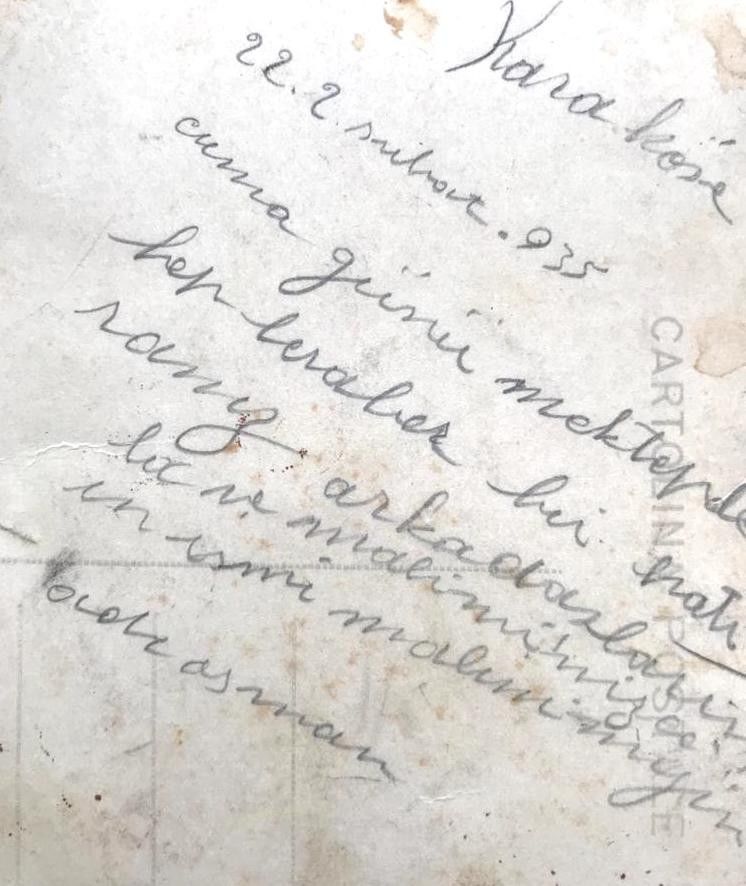 Kara köse
22.2 subat. 935
cuma günü mektepde
hep beraber bir hatı
ramız arkadaslarım
la ve malimimizle.
in ismi malimimizin
CARTOLINA POSTALE